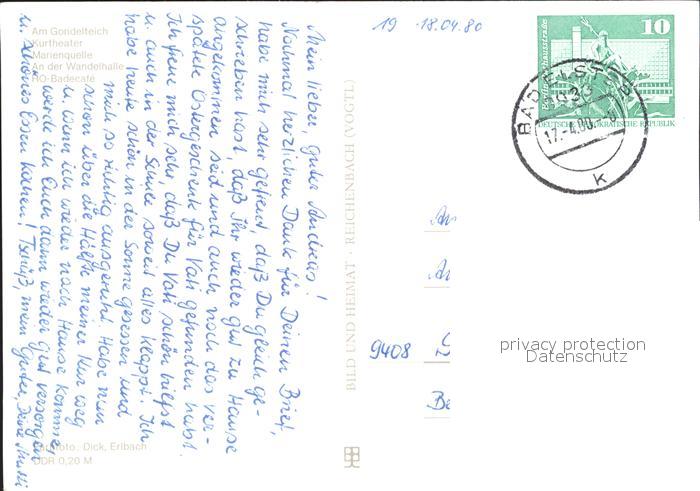 Am Gondelteich
Kurtheater
Marienquelle
An der Wandelhalle
HO-Badecafé
Farbfoto: Dick, Erlbach
DDR 0,20 M
Mein lieber, guter Andreas!
Nochmal herzlichen Dank für Deinen Brief,
habe mich sehr gefreut, daß Du gleich ge-
schrieben hast, daß Ihr wieder gut zu Hause
angekommen seid und auch noch das ver-
spätete Ostergeschenk für Vati gefunden habt.
Ich freue mich sehr, daß Du Vati schön hilfst
u. auch in der Schule soweit alles klappt. Ich
habe heute schön in der Sonne gesessen und
mich so richtig ausgeruht. Habe nun
schon über die Hälfte meiner Kur weg
u. wenn ich wieder nach Hause komme,
werde ich Euch dann wieder gut versorgen
u. schönes Essen kochen! Tschüß, mein Guter, Deine Mutti
BILD UND HEIMAT · REICHENBACH (VOGTL)
19 18.04.80
10
DEUTSCHE DEMOKRATISCHE REPUBLIK
BAD ELSTER
9933
17.-4.80.-
k
An
An
9408
Be
privacy protection
Datenschutz